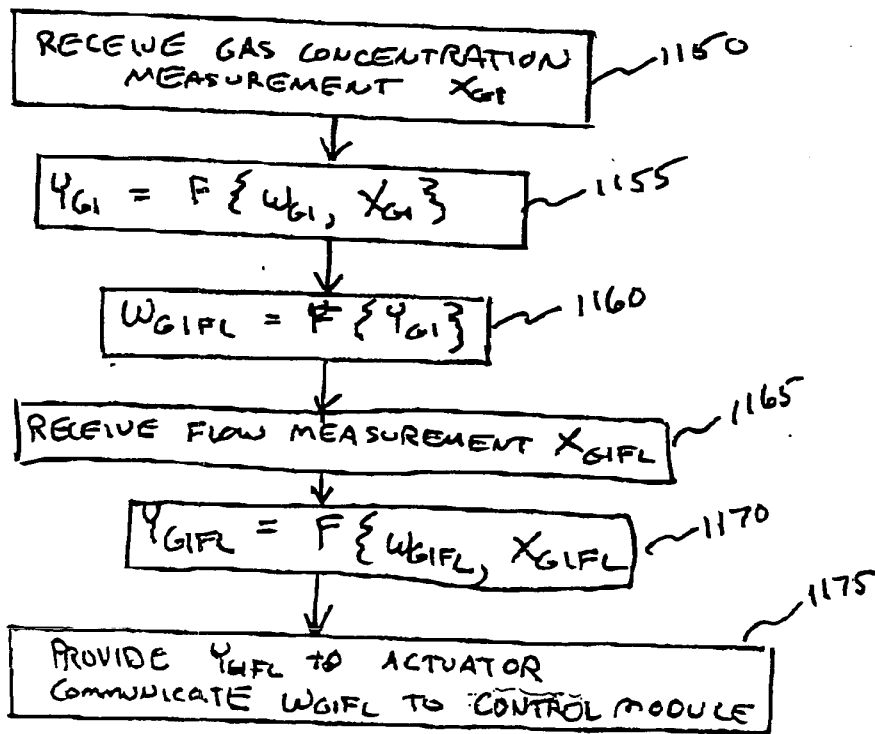 RECEIVE GAS CONCENTRATION
MEASUREMENT X_G1
1150
Y_G1 = F { W_G1, X_G1 }
1155
W_G1FL = F { Y_G1 }
1160
RECEIVE FLOW MEASUREMENT X_G1FL
1165
Y_G1FL = F { W_G1FL, X_G1FL }
1170
PROVIDE Y_G1FL TO ACTUATOR
COMMUNICATE W_G1FL TO CONTROL MODULE
1175